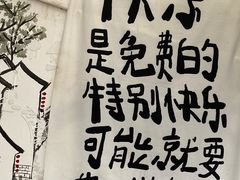 快乐
是免费的
特别快乐
可能就要